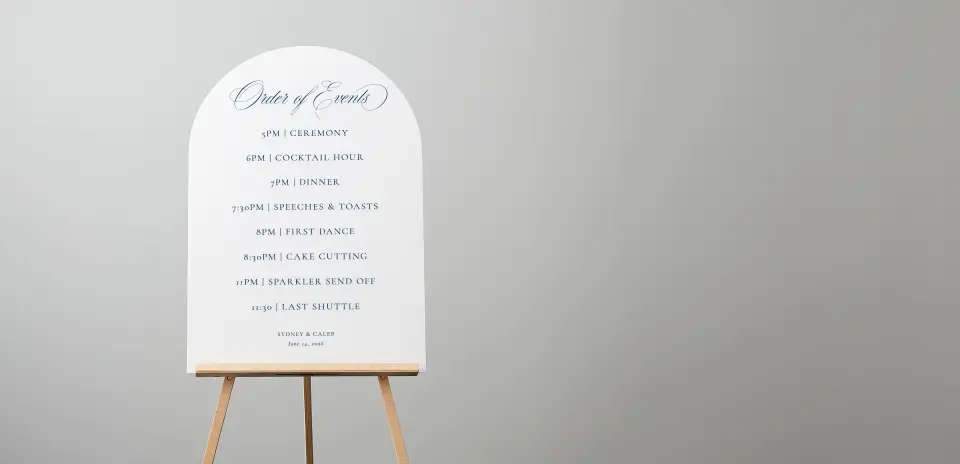 Order of Events
5PM | CEREMONY
6PM | COCKTAIL HOUR
7PM | DINNER
7:30PM | SPEECHES & TOASTS
8PM | FIRST DANCE
8:30PM | CAKE CUTTING
11PM | SPARKLER SEND OFF
11:30 | LAST SHUTTLE
SYDNEY & CALEB
June 14, 2026